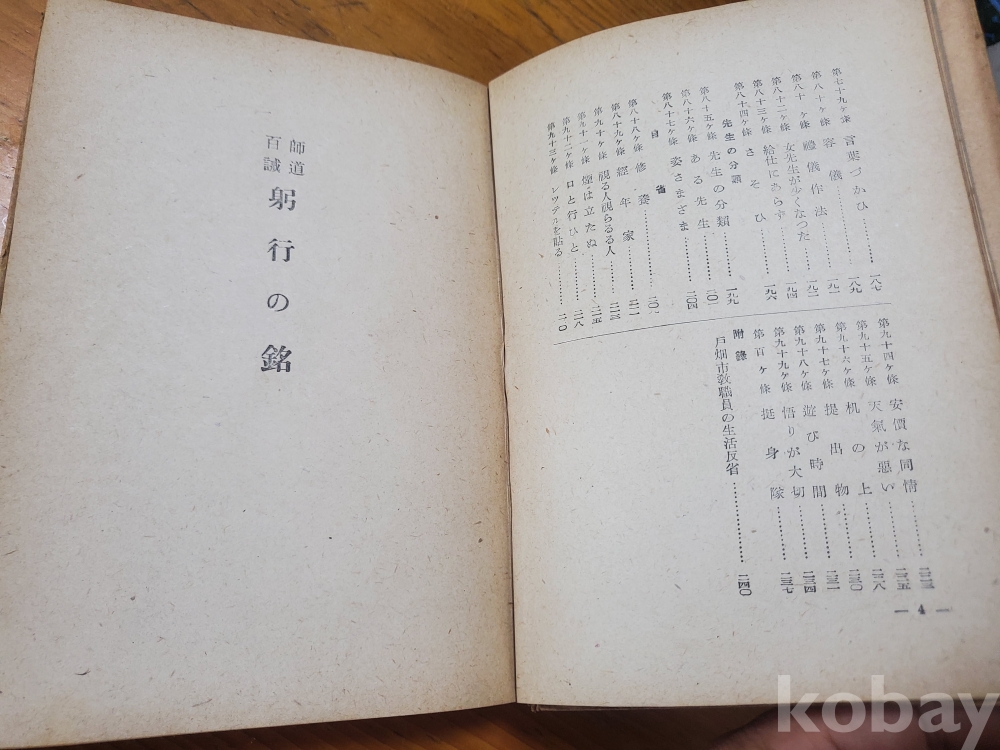 第七十九ヶ條 言葉づかひ……一八七
第八十ヶ條 容儀……一八九
第八十一ヶ條 禮儀作法……一九一
第八十二ヶ條 女先生が少くなつた……一九二
第八十三ヶ條 給仕にあらず……一九四
第八十四ヶ條 さそひ……一九六
先生の分類
第八十五ヶ條 先生の分類……一九九
第八十六ヶ條 ある先生……二〇一
第八十七ヶ條 姿さまざま……二〇四
自省
第八十八ヶ條 修養……二〇八
第八十九ヶ條 經年家……二一一
第九十ヶ條 視る人視らるる人……二一三
第九十一ヶ條 煙は立たぬ……二一五
第九十二ヶ條 口と行ひと……二一八
第九十三ヶ條 レツテルを貼る……二二〇
第九十四ヶ條 安價な同情……二二三
第九十五ヶ條 天氣が惡い……二二五
第九十六ヶ條 机の上……二二八
第九十七ヶ條 提出物……二三〇
第九十八ヶ條 遊び時間……二三一
第九十九ヶ條 悟りが大切……二三四
第百ヶ條 挺身隊……二三七
附錄
戶畑市敎職員の生活反省……二四〇
— 4 —
師道
百誡
躬行の銘
kobay